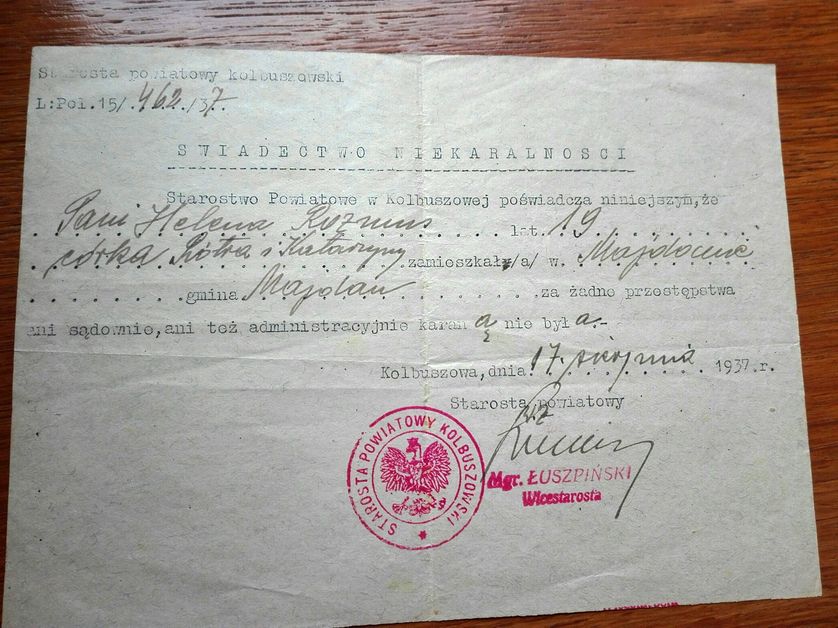 Starosta powiatowy kolbuszowski
L:Pol.15/.462./37.
SWIADECTWO NIEKARALNOSCI
Starostwo Powiatowe w Kolbuszowej poświadcza niniejszym,że
Pani Helena Rozmus lat 19
córka Piotra i Katarzyny zamieszkały/a/ w. Majdanie
gmina Majdan za żadne przestępstwa
ani sądownie,ani też administracyjnie karan ą nie był a.-
Kolbuszowa,dnia 17. sierpnia 1937.r.
Starosta powiatowy
STAROSTA POWIATOWY KOLBUSZOWSKI
Mgr. ŁUSZPIŃSKI
Wicestarosta